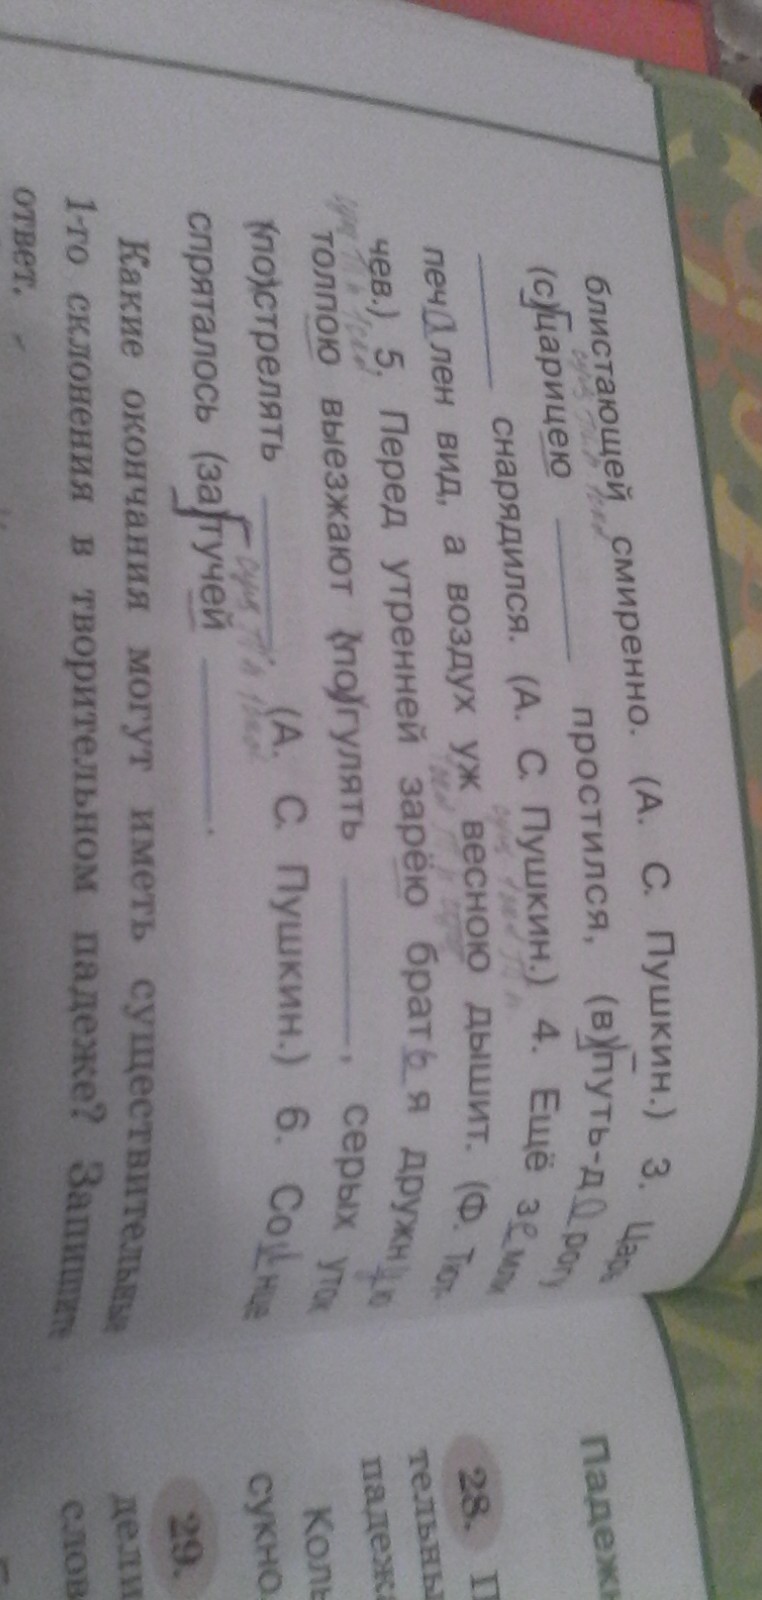 блистающей смиренно. (А. С. Пушкин.) 3. Царь
(с)царицею ______ простился, (в)путь-дорогу
______ снарядился. (А. С. Пушкин.) 4. Ещё земли
печален вид, а воздух уж весною дышит. (Ф. Тют-
чев.) 5. Перед утренней зарёю братья дружною
толпою выезжают (по)гулять ______, серых уток
(по)стрелять ______. (А. С. Пушкин.) 6. Солнце
спряталось (за)тучей ______.
Какие окончания могут иметь существительные
1-го склонения в творительном падеже? Запишите
ответ.
Падежн
28. П
тельны
падежа
Коль
сукно
29.
дели
слов